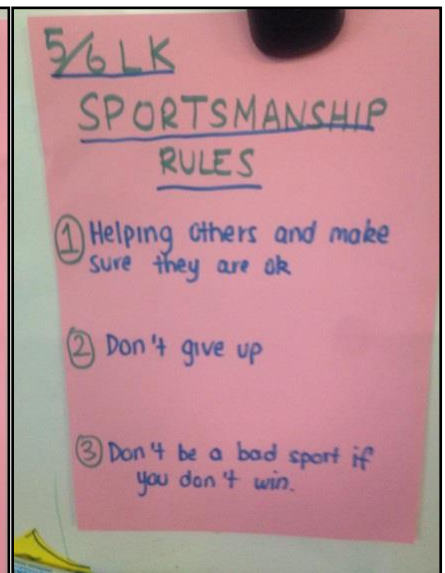 5/6 LK
SPORTSMANSHIP
RULES
1 Helping others and make
sure they are ok
2 Don't give up
3 Don't be a bad sport if
you don't win.